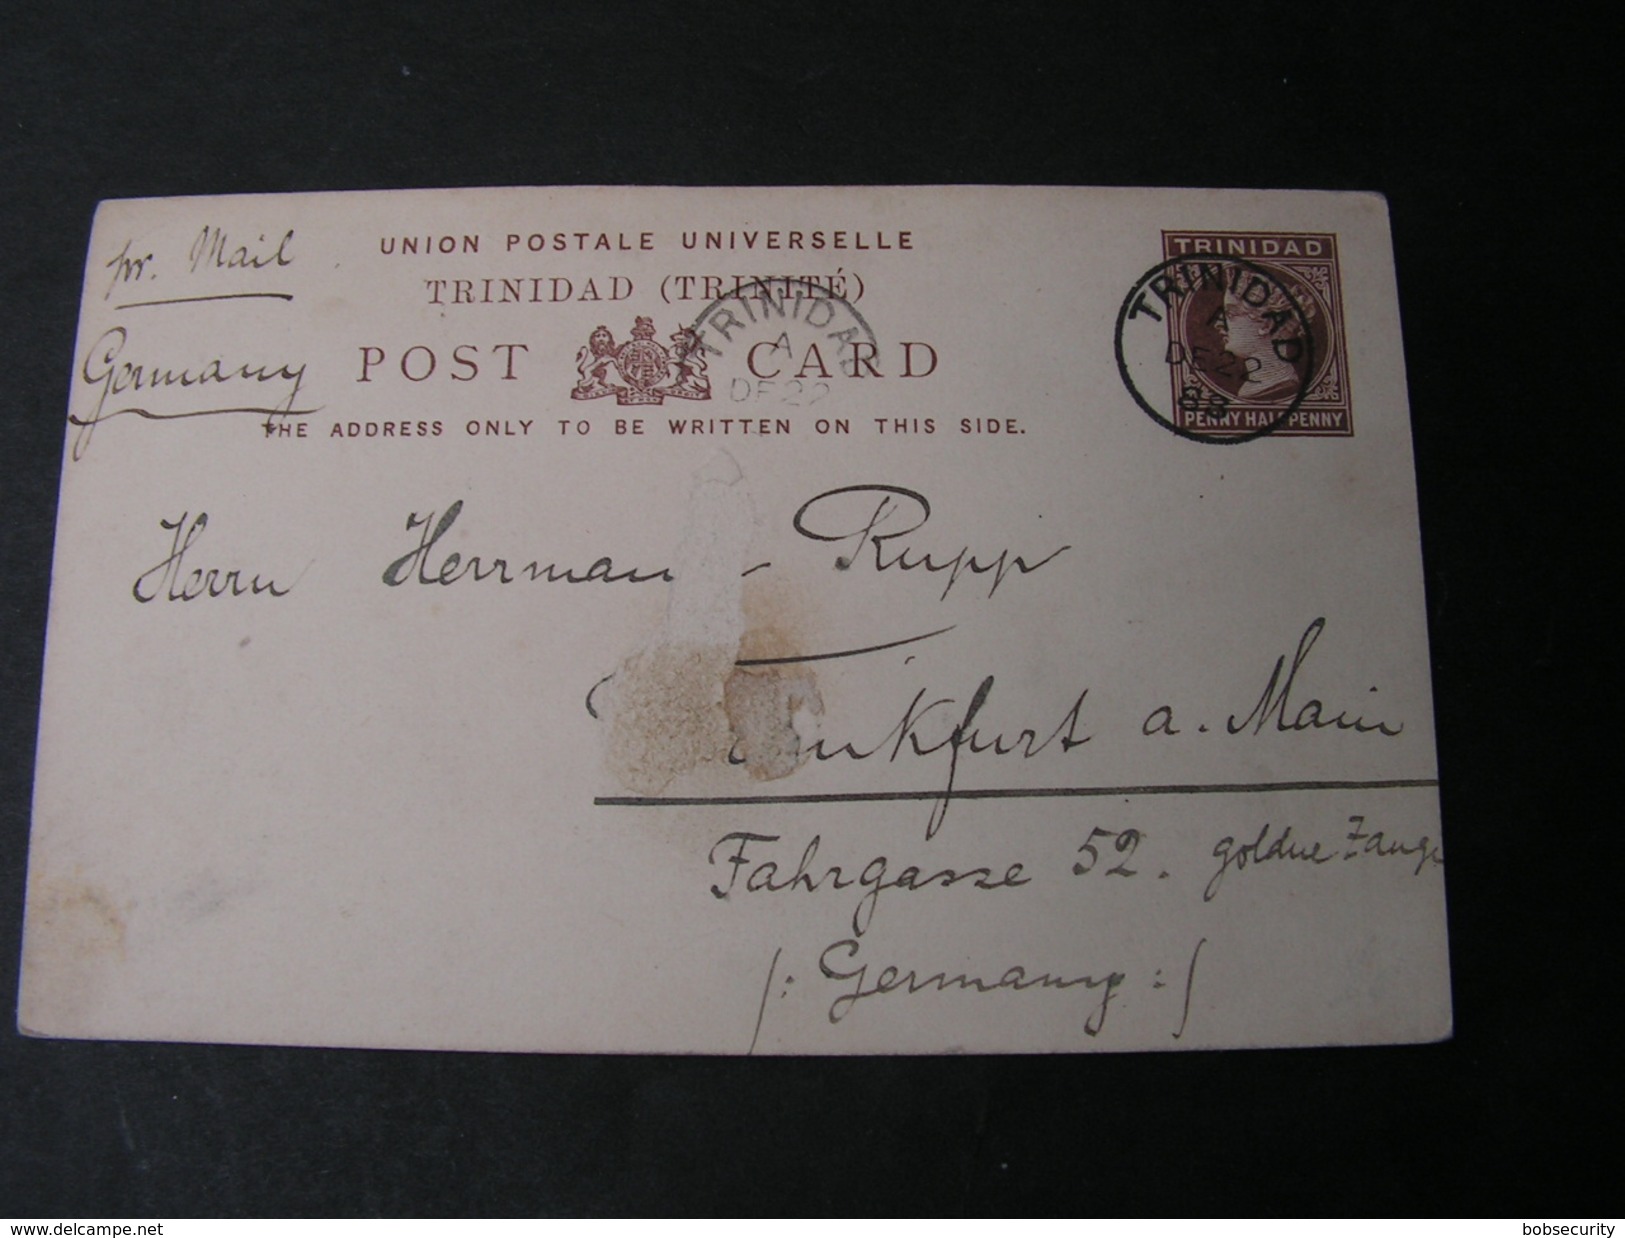 pr. Mail
Germany
UNION POSTALE UNIVERSELLE
TRINIDAD (TRINITÉ)
POST CARD
THE ADDRESS ONLY TO BE WRITTEN ON THIS SIDE.
TRINIDAD
A
DE 22
TRINIDAD
PENNY HALFPENNY
TRINIDAD
A
DE 22
88
Herrn Herrman Rupp
Frankfurt a. Main
Fahrgasse 52. goldne Zange
/: Germany :/
www.delcampe.net
bobsecurity